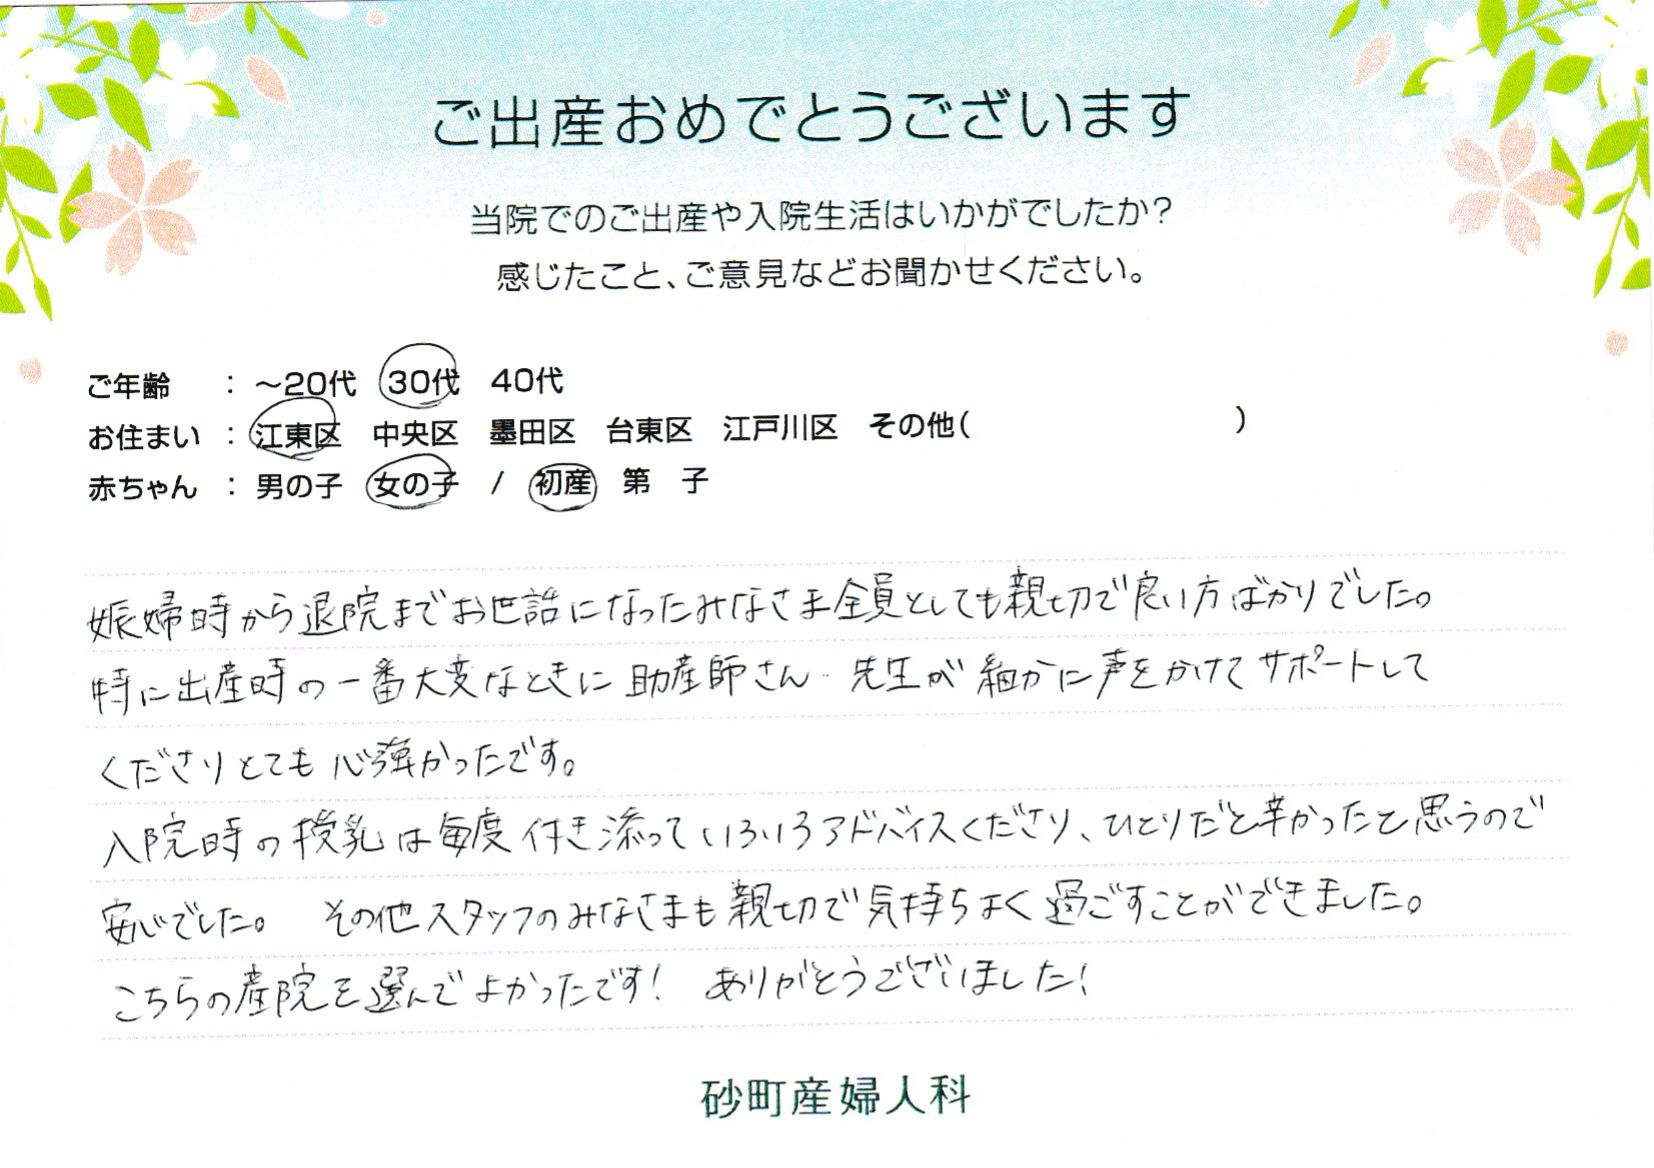 ご出産おめでとうございます
当院でのご出産や入院生活はいかがでしたか?
感じたこと、ご意見などお聞かせください。
ご年齢 : ～20代 30代 40代
お住まい : 江東区 中央区 墨田区 台東区 江戸川区 その他( )
赤ちゃん : 男の子 女の子 / 初産 第 子
娠婦時から退院までお世話になったみなさま全員とても親切で良い方ばかりでした。
特に出産時の一番大変なときに助産師さん・先生が細かに声をかけてサポートして
くださりとても心強かったです。
入院時の授乳は毎度付き添っていろいろアドバイスくださり、ひとりだと辛かったと思うので
安心でした。 その他スタッフのみなさまも親切で気持ちよく過ごすことができました。
こちらの産院を選んでよかったです! ありがとうございました!
砂町産婦人科